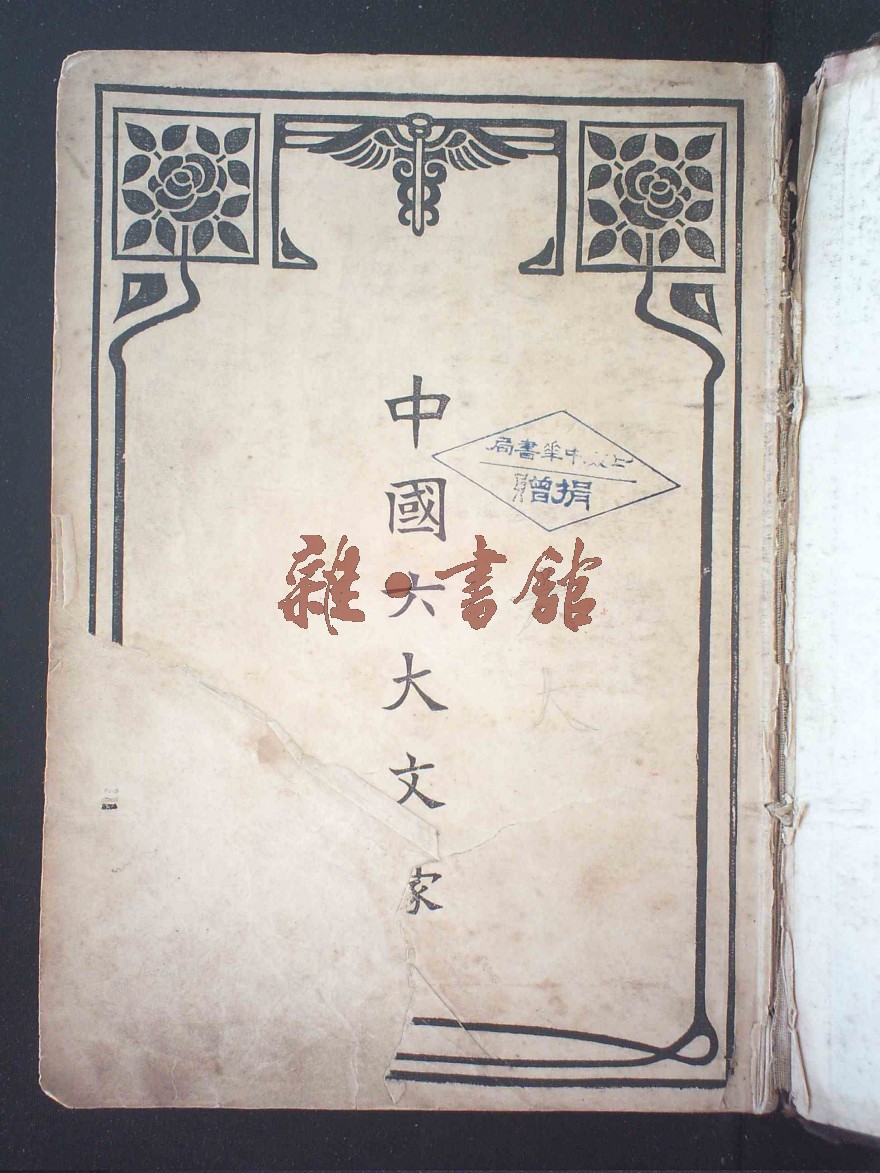 中國六大文家
中華書局
捐贈
雜·書館
大